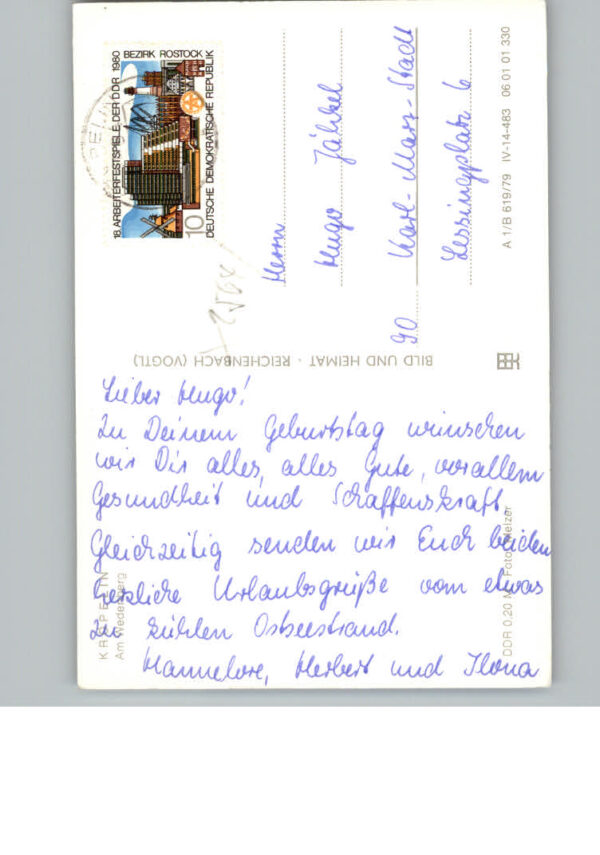 18. ARBEITERFESTSPIELE DER DDR 1980 BEZIRK ROSTOCK
10
DEUTSCHE DEMOKRATISCHE REPUBLIK
Herrn
Hugo Jähkel
90 Karl-Marx-Stadt
Lessingplatz 6
A 1/B 619/79 IV-14-483 06 01 01 330
BILD UND HEIMAT · REICHENBACH (VOGTL)
Lieber Hugo!
Zu Deinem Geburtstag wünschen
wir Dir alles, alles Gute, vor allem
Gesundheit und Schaffenskraft.
Gleichzeitig senden wir Euch beiden
herzliche Urlaubsgrüße vom etwas
zu kühlen Ostseestrand.
Hannelore, Herbert und Ilona
KRÖPELIN
Am Wedenberg
DDR 0,20 M Foto: